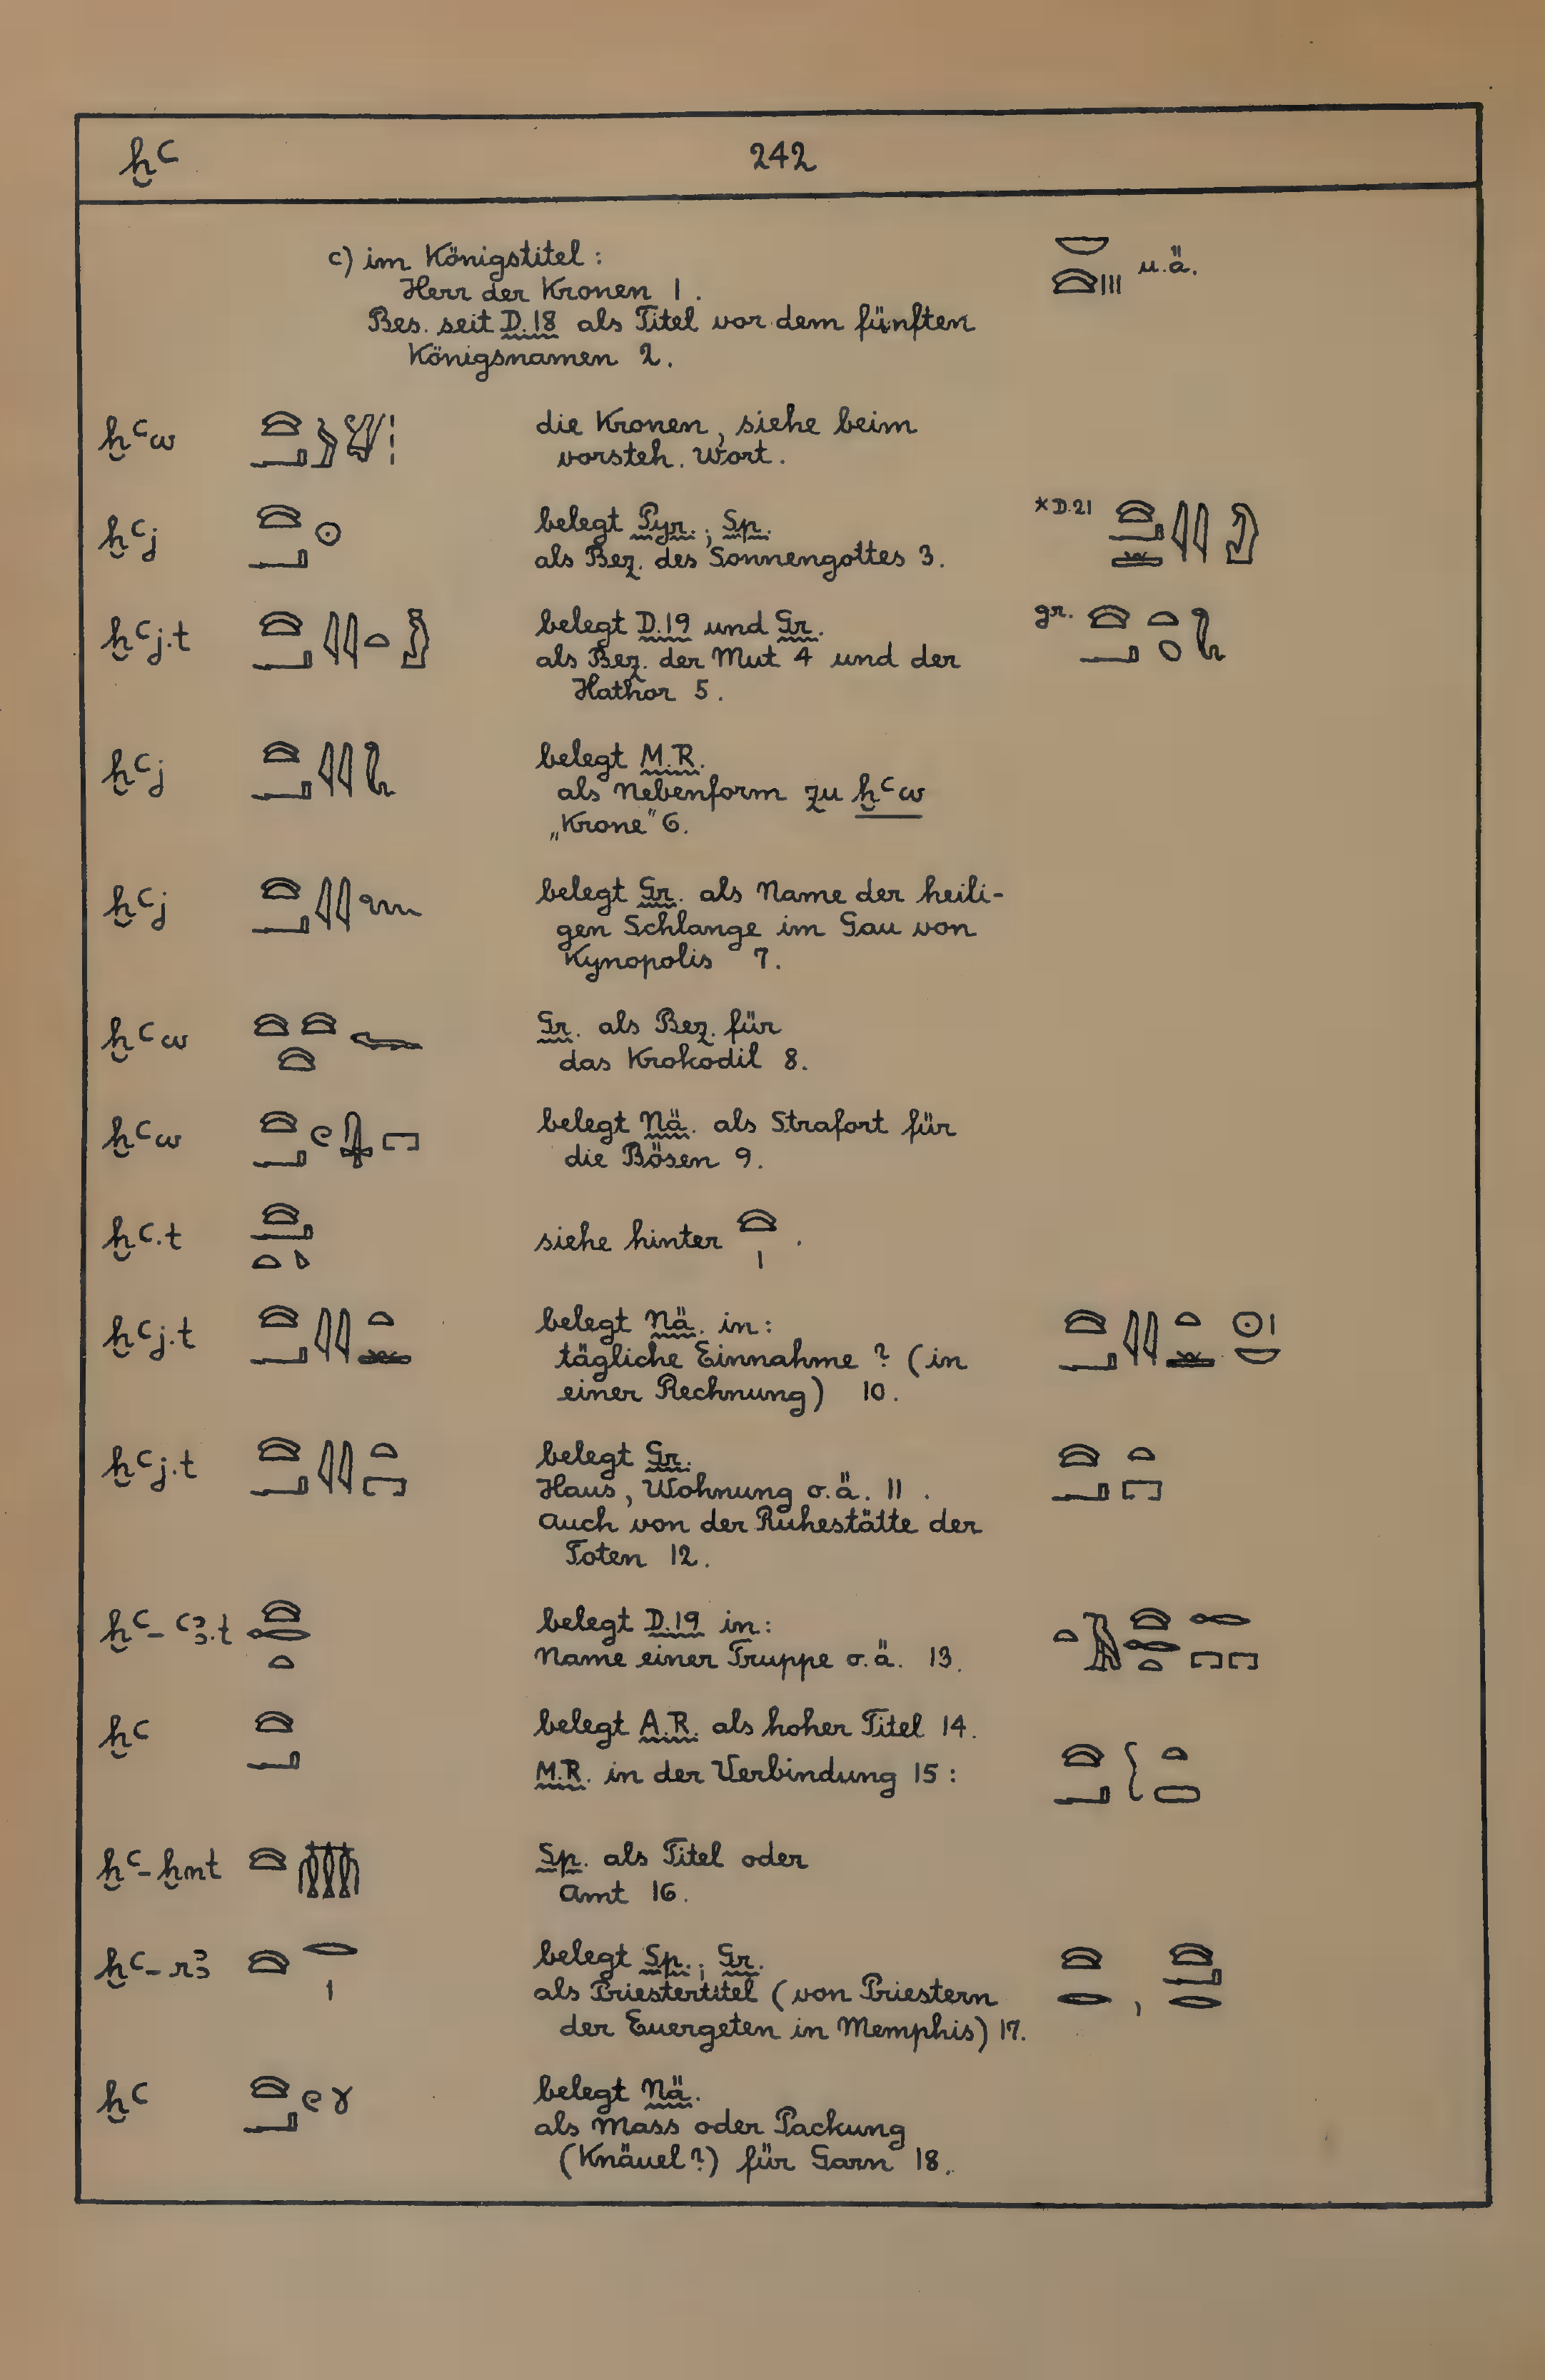 ḫꜥ 242
c) im Königstitel:
Herr der Kronen 1. 𓎟𓈍𓏥 u.ä.
Bes. seit D.18 als Titel vor dem fünften
Königsnamen 2.
ḫꜥw die Kronen, siehe beim
vorsteh. Wort.
ḫꜥj 𓈍𓂝𓇳 belegt Pyr.; Sp. *D.21
als Bez. des Sonnengottes 3.
ḫꜥj.t belegt D.19 und Gr. gr.
als Bez. der Mut 4 und der
Hathor 5.
ḫꜥj belegt M.R.
als Nebenform zu ḫꜥw
„Krone" 6.
ḫꜥj belegt Gr. als Name der heili-
gen Schlange im Gau von
Kynopolis 7.
ḫꜥw 𓈍𓈍𓈍𓆊 Gr. als Bez. für
das Krokodil 8.
ḫꜥw belegt Nä. als Strafort für
die Bösen 9.
ḫꜥ.t siehe hinter 𓈍𓏤.
ḫꜥj.t 𓈍𓂝𓇌𓏏𓏛 belegt Nä. in: 𓈍𓂝𓇌𓏏𓏛𓇳𓏤𓎟
tägliche Einnahme? (in
einer Rechnung) 10.
ḫꜥj.t 𓈍𓂝𓇌𓏏𓉐 belegt Gr. 𓈍𓂝𓏏𓉐
Haus, Wohnung o.ä. 11.
Auch von der Ruhestätte der
Toten 12.
ḫꜥ-ꜥꜣ.t 𓈍𓉻𓏏 belegt D.19 in:
Name einer Truppe o.ä. 13.
ḫꜥ 𓈍𓂝 belegt A.R. als hoher Titel 14.
M.R. in der Verbindung 15:
ḫꜥ-ḫnt 𓈍𓏃 Sp. als Titel oder
Amt 16.
ḫꜥ-rꜣ 𓈍𓂋𓏤 belegt Sp.; Gr. 𓈍𓂋, 𓈍𓂝𓂋
als Priestertitel (von Priestern
der Euergeten in Memphis) 17.
ḫꜥ 𓈍𓂝𓏲𓍢 belegt Nä.
als Mass oder Packung
(Knäuel?) für Garn 18.